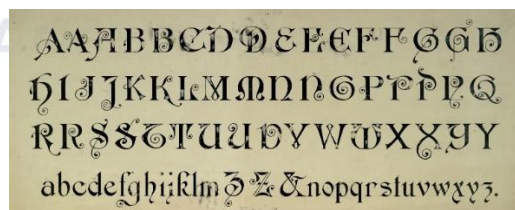 A A A B B C D D E E E F F G G H
H I J J K K L M M N N O P P P Q Q
R R S S T T U U V V W W X X Y Y
abcdefghijklm Z Z & nopqrstuvwxyz.